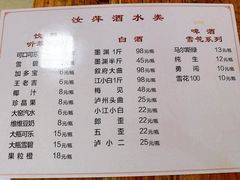 汝萍酒水类
饮
听
可口可乐 6元/瓶
雪碧 6元/瓶
加多宝 6元/瓶
王老吉 6元/瓶
椰汁 6元/瓶
珍品果 8元/瓶
大窑汽水 6元/瓶
维维豆奶 6元/瓶
大瓶可乐 15元/瓶
大瓶雪碧 15元/瓶
果粒橙 18元/瓶
白酒
墨渊1斤 98元/瓶
墨渊半斤 45元/瓶
叙府大曲 68元/瓶
江小白1斤 58元/瓶
梅见 58元/瓶
泸州头曲 35元/瓶
小江小白 22元/瓶
小郎酒 25元/瓶
歪 25元/瓶
泸小二 25元/瓶
啤酒
雪花系列
马尔斯绿 13元/瓶
纯生 12元/瓶
勇闯 10元/瓶
雪花100 10元/瓶